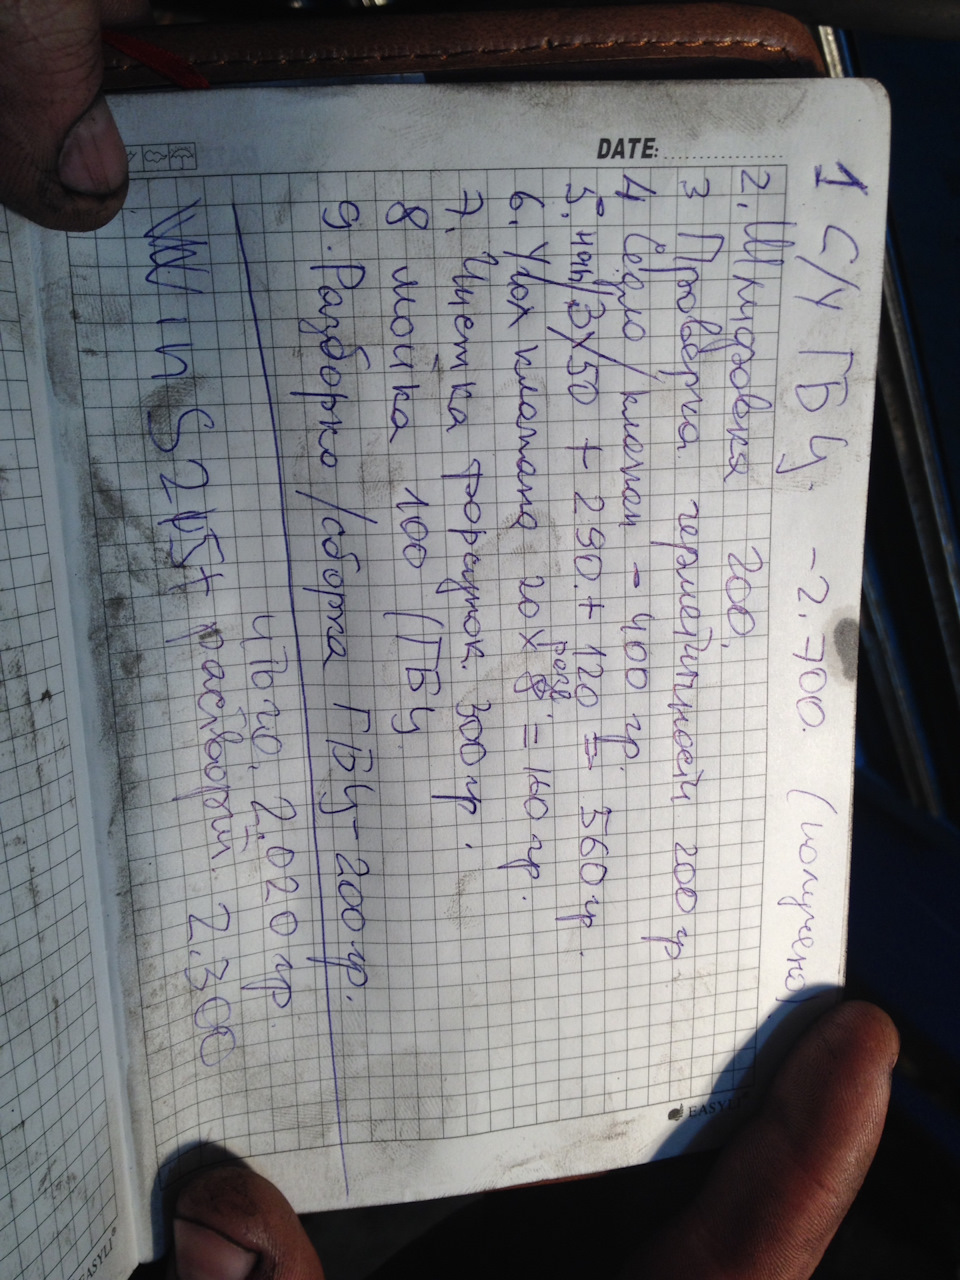 DATE:
1 С/У ГБЦ. -2.700. (получено)
2. Шлифовка 200.
3 Проверка герметичности 200 гр
4 Седло/клапан - 400 гр.
5. /3х/50 + 290.+ 120 = 560 гр.
6. клапана 20 х 8 = 160 гр.
7. Чистка форсунок. 300 гр.
8 мойка 100 /ГБЦ
9. Разборка /сборка ГБЦ - 200 гр.
Итого. 2.020 гр
+ раствори 2.300
EASYLI
EASYLI®